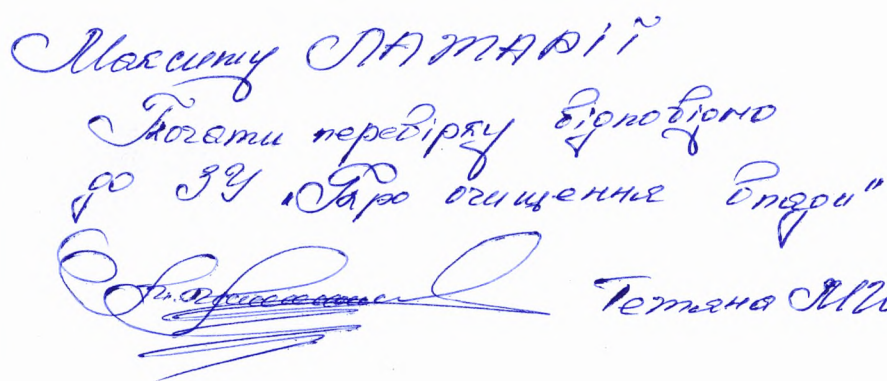 Максиму ЛАТАРІЇ
Почати перевірку відповідно
до ЗУ „Про очищення влади"
Тетяна